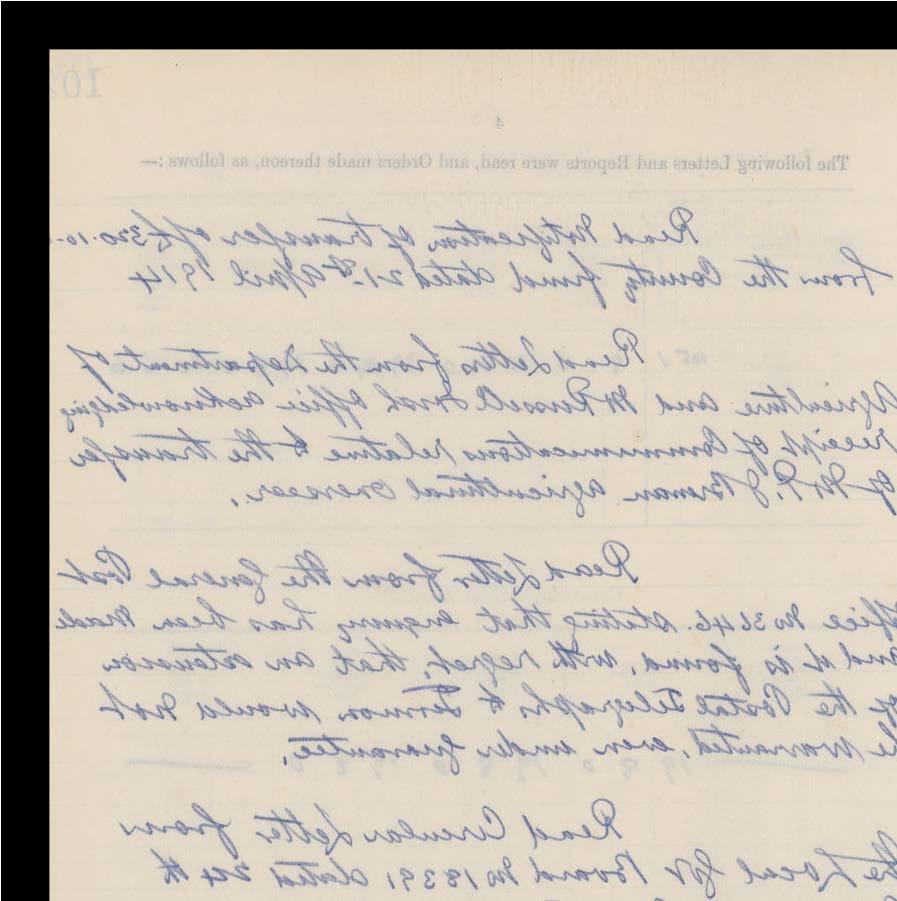 102
4
The following Letters and Reports were read, and Orders made thereon, as follows :—
Read Notification of transfer of £320.10.
from the County fund dated 21st April 1914
Read Letter from the Department of
Agriculture and Mr Russell Irish Office acknowledging
receipt of Communications relative to the transfer
of Mr P. J. Brenan agricultural overseer.
Read Letter from the General Post
Office No 3646. stating that inquiry has been made
and it is found, with regret, that an extension
of the Postal Telegraphs to would not
be warranted, even under guarantee.
Read Circular Letter from
the Local Gov Board No 18391 dated 24th